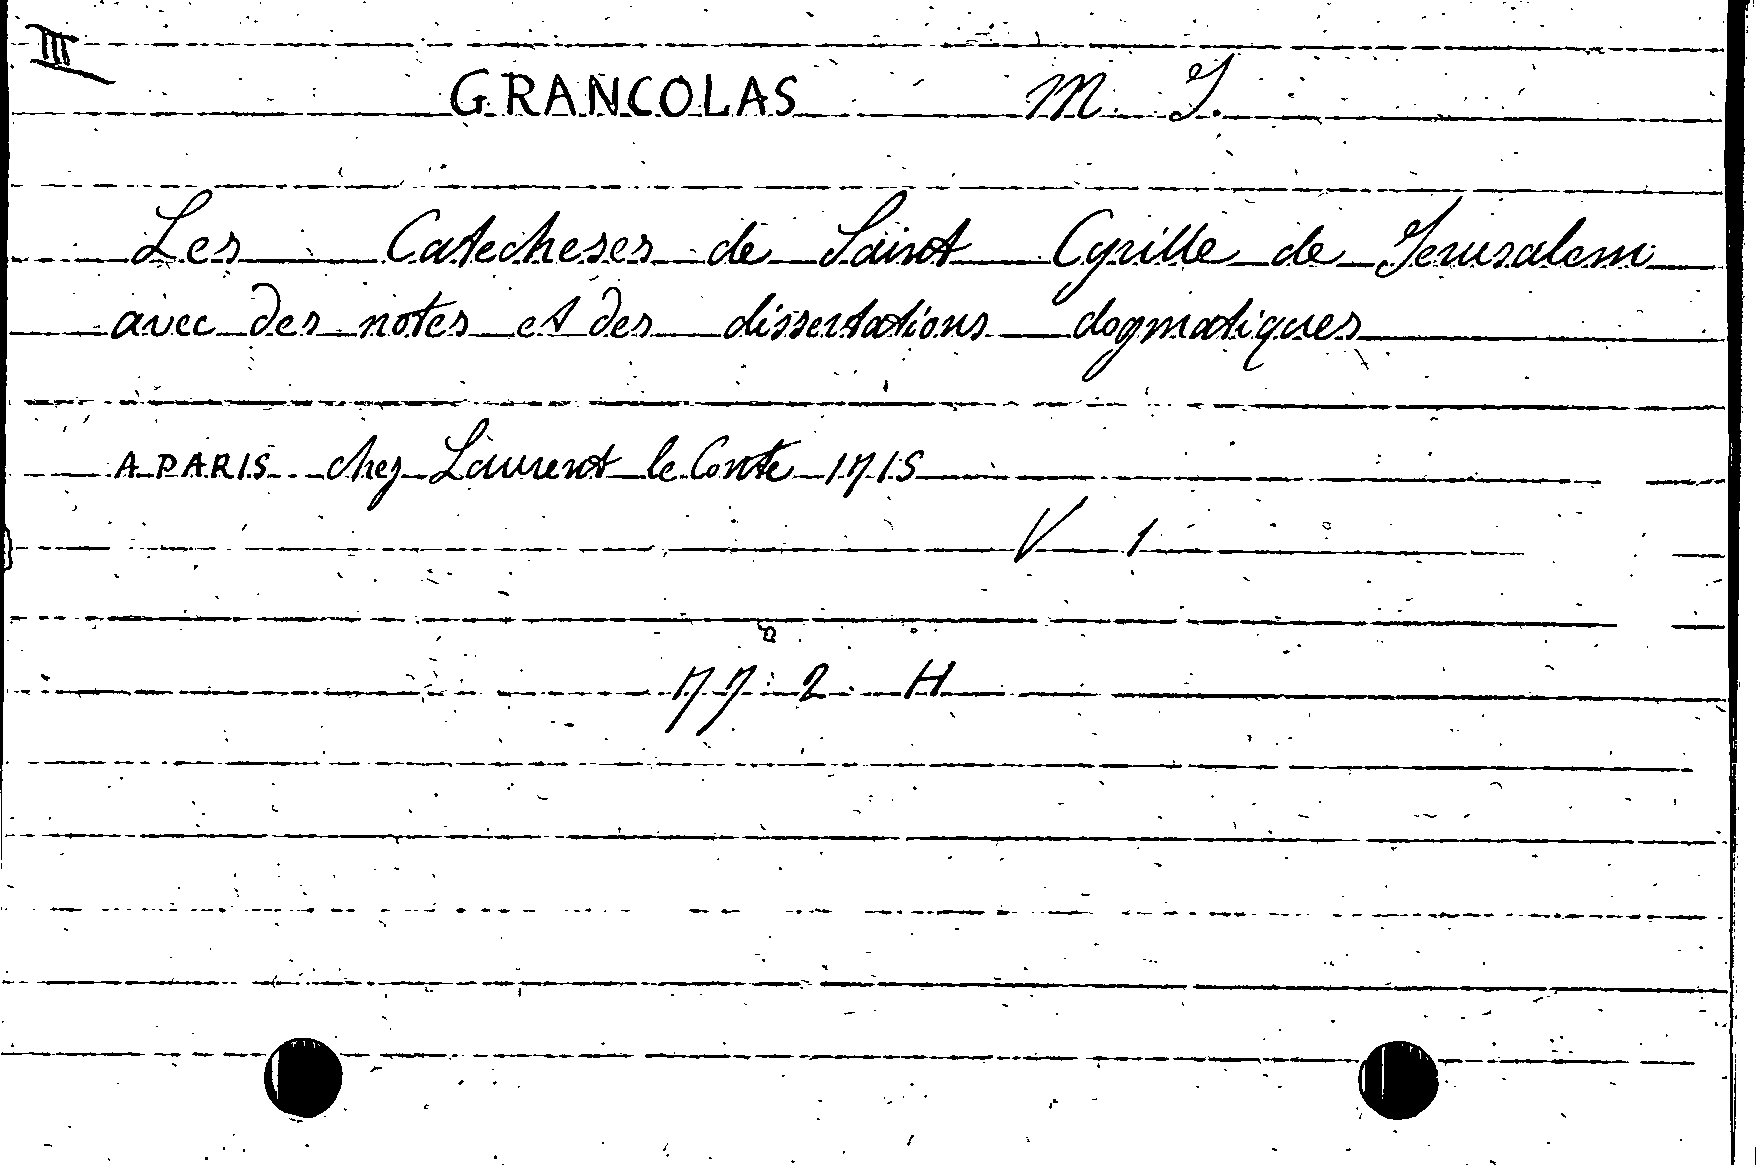 III
GRANCOLAS M. J.
Les Catecheses de Saint Cyrille de Jerusalem
avec des notes et des dissertations dogmatiques
A PARIS chez Laurent le Conte 1715
V 1
77 2 H